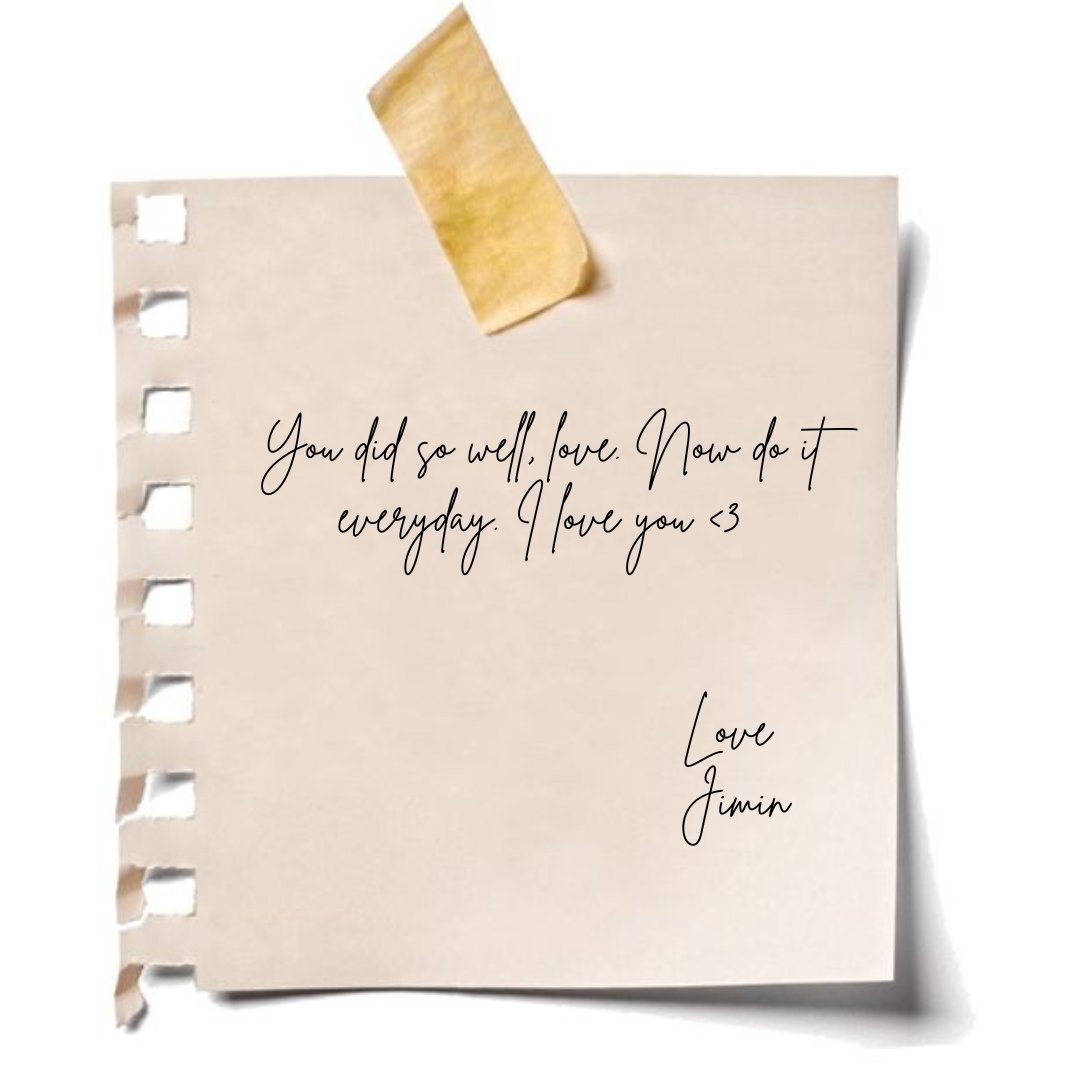 You did so well, love. Now do it
everyday. I love you <3
Love
Jimin